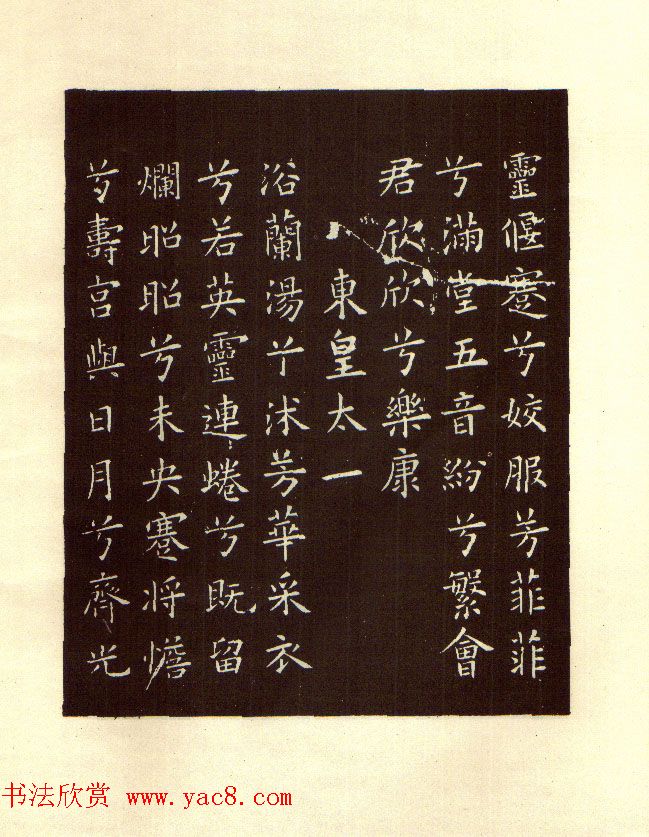 靈偃蹇兮姣服芳菲菲
兮滿堂五音紛兮繁會
君欣欣兮樂康
東皇太一
浴蘭湯兮沐芳華采衣
兮若英靈連蜷兮既留
爛昭昭兮未央蹇将憺
兮壽宫與日月兮齊光
书法欣赏 www.yac8.com